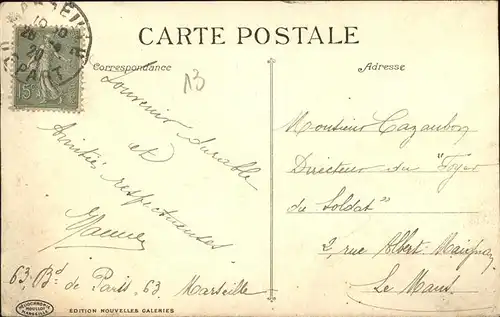 CARTE POSTALE
Correspondance
Adresse
13
Souvenir durable
et
Amitiés respectueuses
63. Bd de Paris. 63. Marseille
Monsieur Cazaubon
Directeur du "Foyer
du Soldat"
2, rue Albert
Le Mans
EDITION NOUVELLES GALERIES